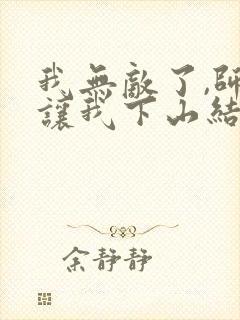 我無敵了,師
讓我下山結
余靜靜